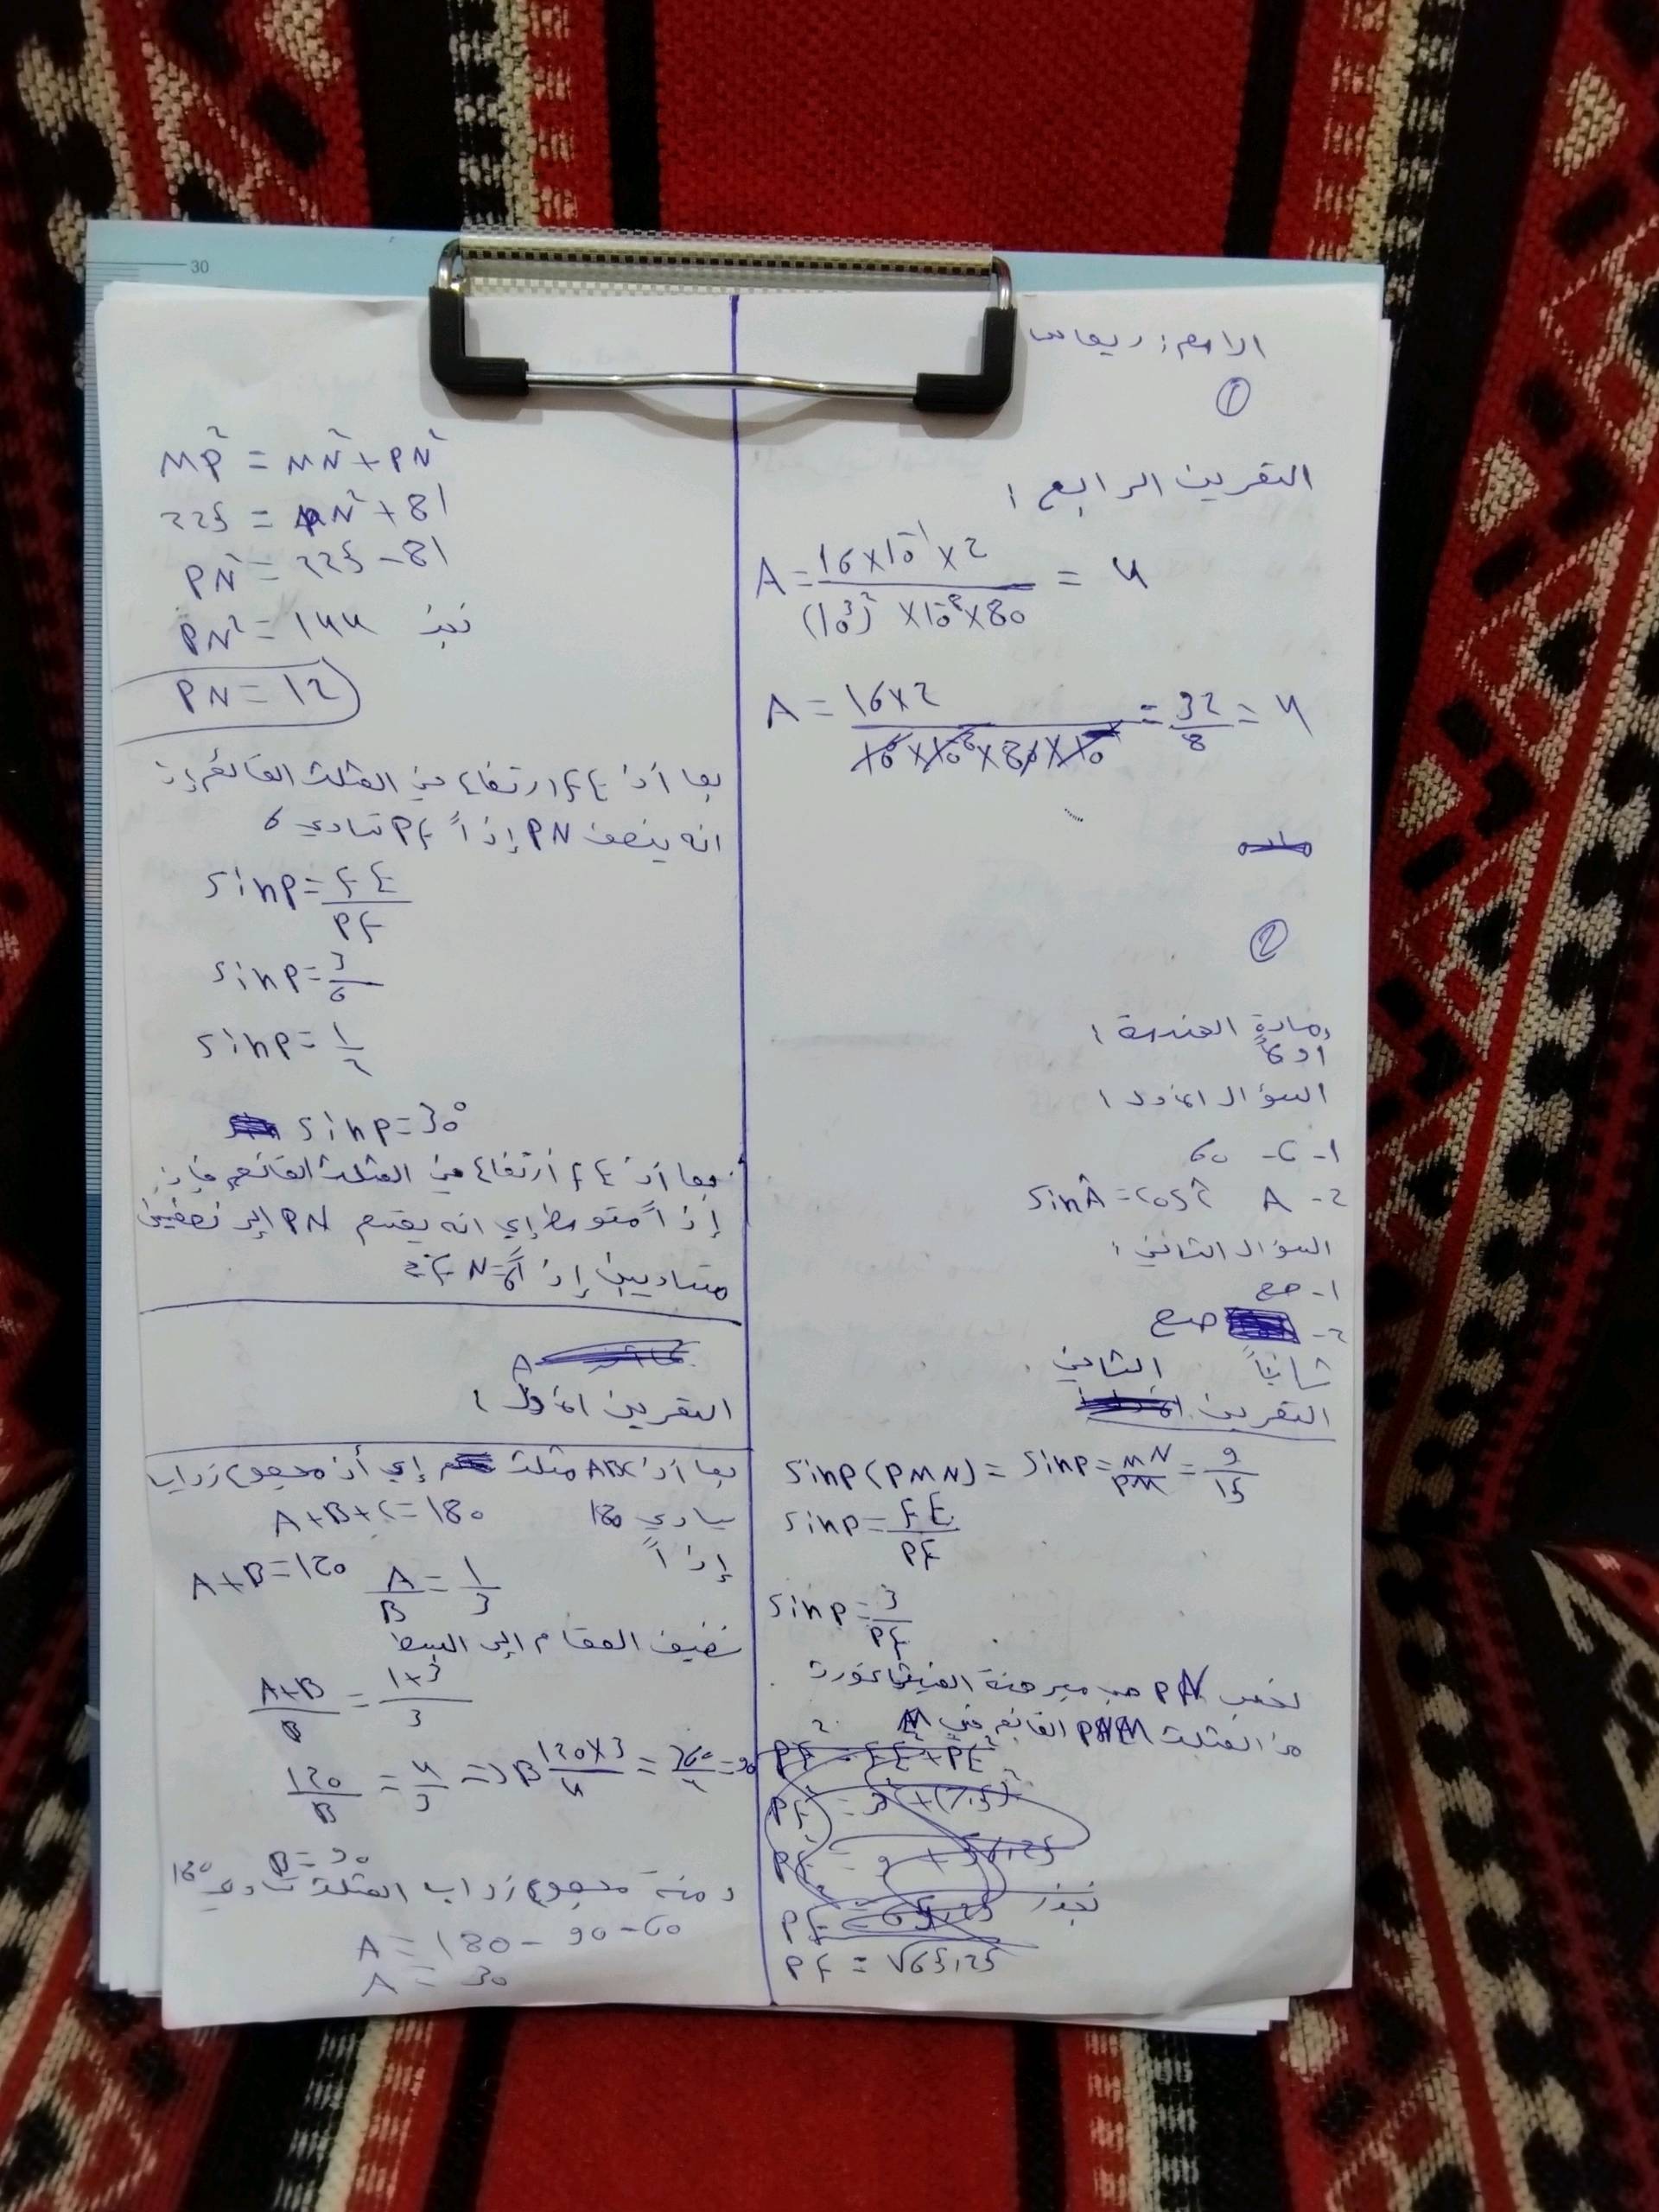 30
الاسم: ريماس
①
التمرين الرابع:
A = 16×10⁻¹×2 / (10³)² ×10⁻⁸×80 = 4
A = 16×2 / 10⁶×10⁻⁸×80×10 = 32/8 = 4
②
مادة الهندسة:
أولاً
السؤال الأول:
1- C- 60
2- A sinÂ = cosĈ
السؤال الثاني:
1- صح
2- صح
ثانياً
التمرين الثاني
sinp(PMN) = sinp = MN/PM = 9/15
sinp = FE/PF
sinp = 3/PF
نحسب PN حسب مبرهنة الفيثاغورث
من المثلث PNM القائم في N
PF² = FE² + PE²
PF² = 3² + (7.5)²
PF² = 9 + 56,25
PF² = 65,25 نجذر
PF = √65,25
MP² = MN² + PN²
225 = PN² + 81
PN² = 225 - 81
PN² = 144 نجذر
PN = 12
بما أن FE ارتفاع في المثلث القائم إذ
انه ينصف PN إذاً PF تساوي 6
sinp = FE/PF
sinp = 3/6
sinp = 1/2
sinp = 30°
بما أن FE ارتفاع في المثلث القائم فإن
إذاً متوسط إي انه يقسم PN إلى نصفين
متساويين إذاً FN=6
A
التمرين الأول:
بما أن ABC مثلث إي أن مجموع زوايا
يساوي 180 A+B+C=180
إذاً A/B = 1/3 A+B=120
نضيف المقام إلى البسط
A+B/B = 1+3/3
120/B = 4/3 => B 120×3/4 = 360/4 = 90
B = 90
ومنه مجموع زوايا المثلث تساوي 180
A = 180 - 90 - 60
A = 30